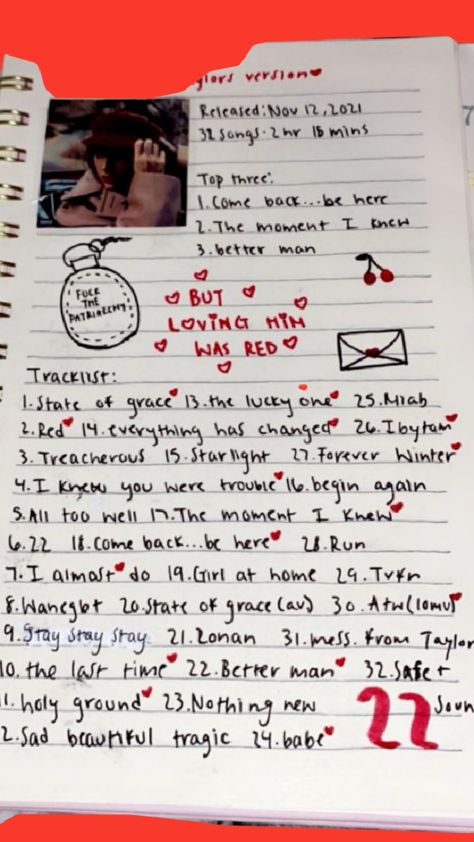 ylors version
Released: Nov 12, 2021
32 songs · 2 hr 15 mins
Top three:
1. Come back...be here
2. The moment I knew
3. better man
FUCK
THE
PATRIARCHY
BUT
LOVING HIM
WAS RED
Tracklist:
1. State of grace 13. the lucky one 25. Mlab
2. Red 14. everything has changed 26. Ibytam
3. Treacherous 15. Starlight 27. Forever Winter
4. I knew you were trouble 16. begin again
5. All too well 17. The moment I knew
6. 22 18. Come back...be here 28. Run
7. I almost do 19. Girl at home 29. Tvkn
8. Wanegbt 20. State of grace (av) 30. Atw (10mv)
9. Stay Stay Stay 21. Ronan 31. mess. from Taylor
10. the last time 22. Better man 32. Safe +
1. holy ground 23. Nothing new 22 Soun
2. Sad beautiful tragic 24. babe